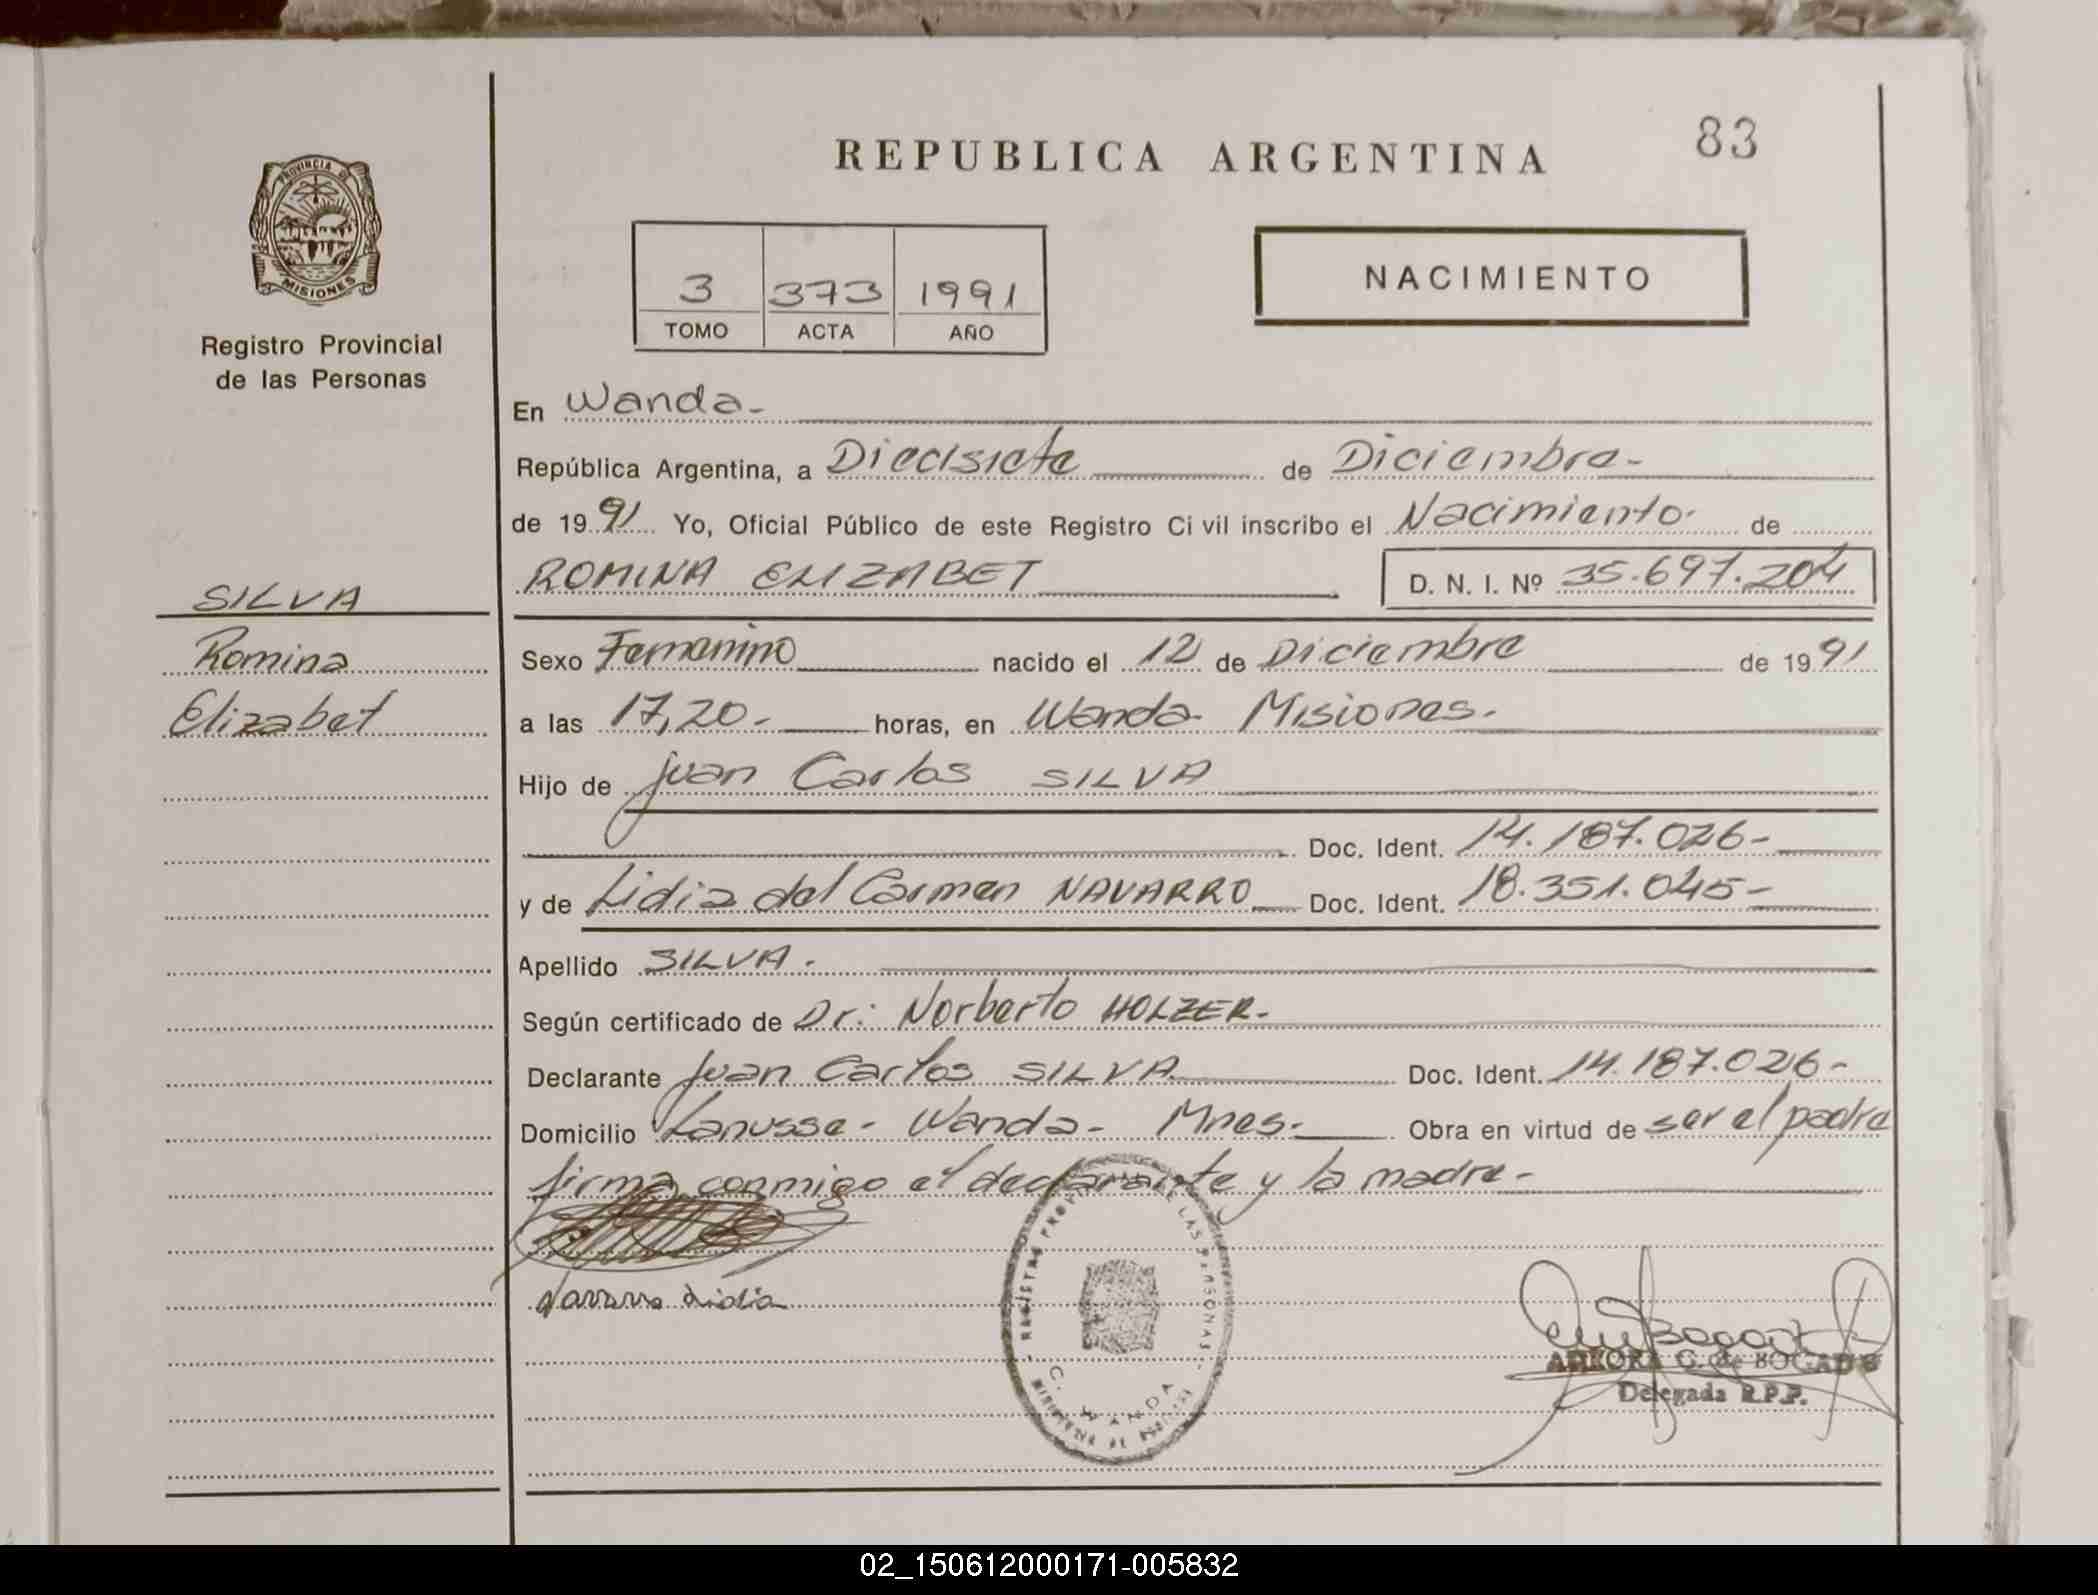 REPUBLICA ARGENTINA
83
PROVINCIA DE
MISIONES
Registro Provincial
de las Personas
3 373 1991
TOMO ACTA AÑO
NACIMIENTO
En Wanda-
República Argentina, a Diecisiete de Diciembre-
de 1991 Yo, Oficial Público de este Registro Civil inscribo el Nacimiento de
ROMINA ELIZABET D. N. I. Nº 35.697.204
SILVA
Romina
Elizabet
Sexo Femenino nacido el 12 de Diciembre de 1991
a las 17,20- horas, en Wanda- Misiones-
Hijo de Juan Carlos SILVA
Doc. Ident. 14.187.026-
y de Lidia del Carmen NAVARRO Doc. Ident. 18.351.045-
Apellido SILVA.
Según certificado de Dr: Norberto HOLZER-
Declarante Juan Carlos SILVA Doc. Ident. 14.187.026-
Domicilio Lanusse- Wanda- Mnes- Obra en virtud de ser el padre
firma conmigo el declarante y la madre-
Navarro Lidia
REGISTRO PROVINCIAL DE LAS PERSONAS
WANDA
G. de BOGADO
Delegada R.P.P.
02_150612000171-005832